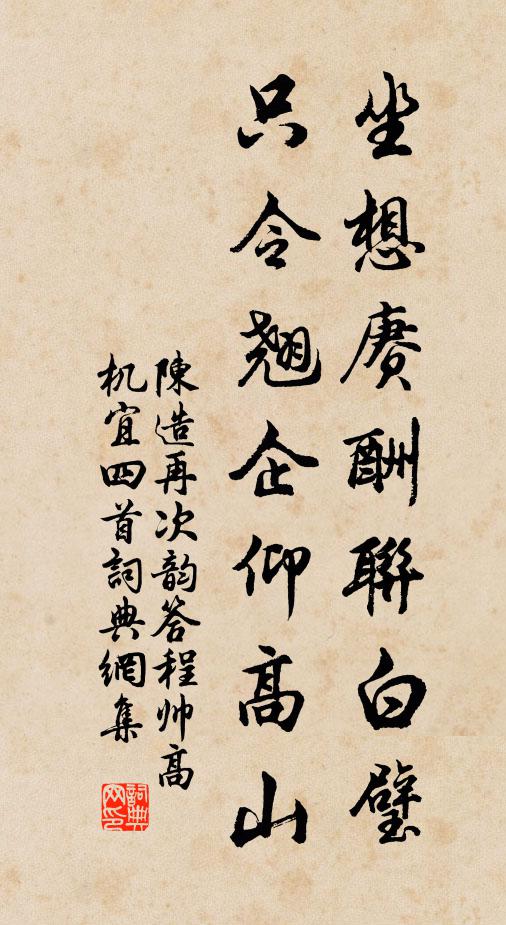 坐想赓酬聯白璧
只令翹企仰高山
陳造再次韵答程帅高
机宜四首詞典網集
詞典网印